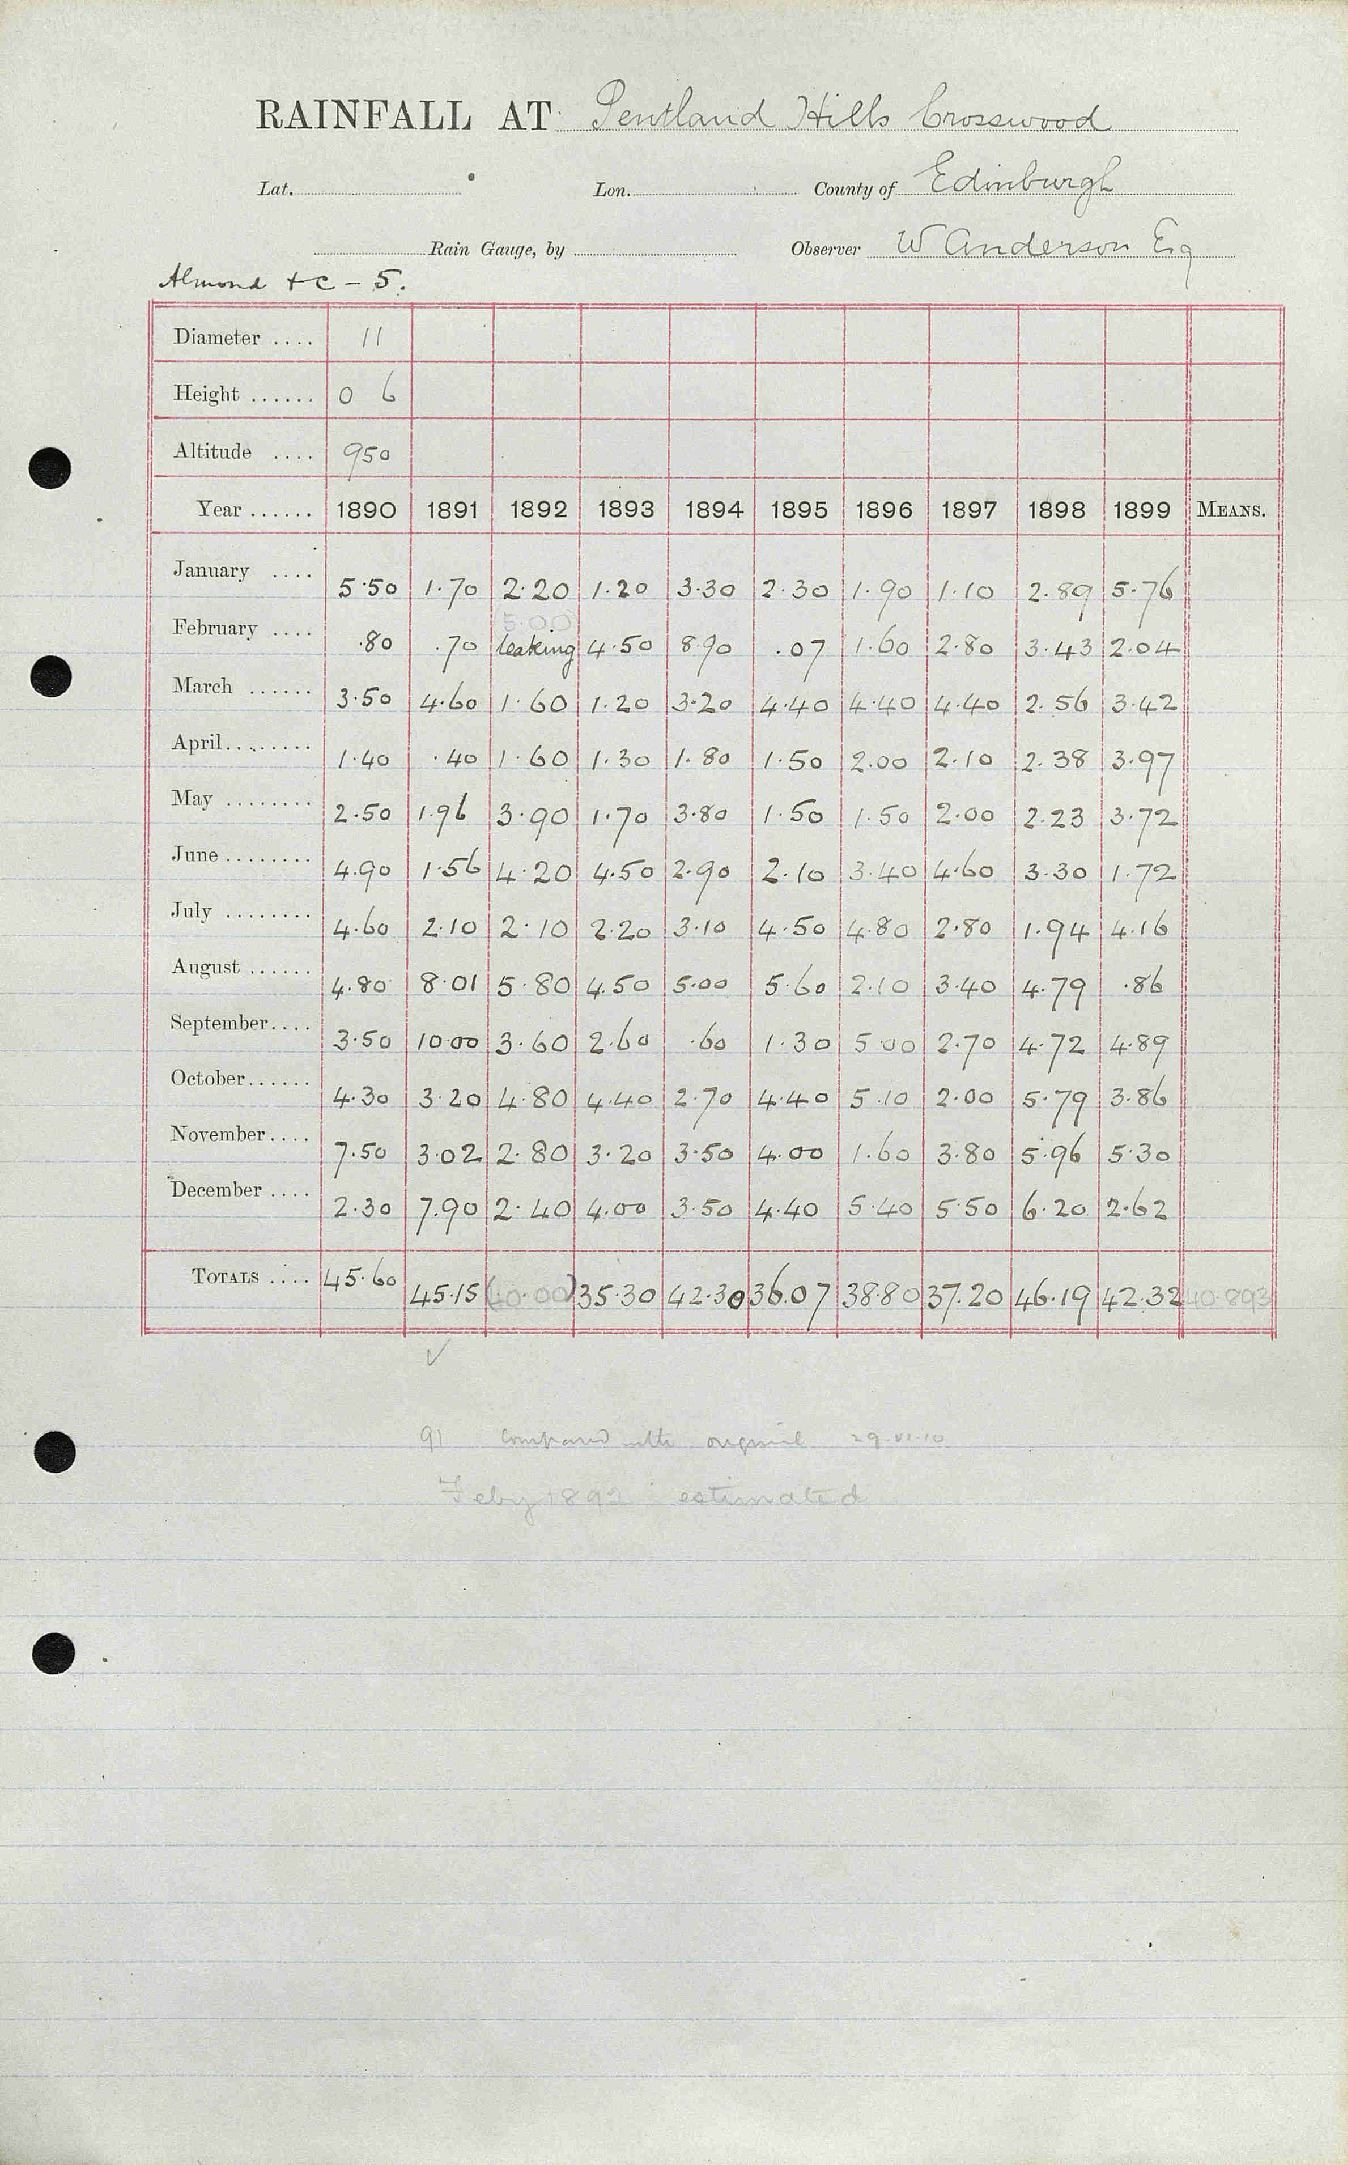 RAINFALL AT Pentland Hills Crosswood
Lat. Lon. County of Edinburgh
Rain Gauge, by Observer W Anderson Esq
Almond &c - 5.
Diameter .... 11
Height ...... 0 6
Altitude .... 950
Year ...... 1890 1891 1892 1893 1894 1895 1896 1897 1898 1899 MEANS.
January .... 5.50 1.70 2.20 1.20 3.30 2.30 1.90 1.10 2.89 5.76
5.00
February .... .80 .70 leaking 4.50 8.90 .07 1.60 2.80 3.43 2.04
March ...... 3.50 4.60 1.60 1.20 3.20 4.40 4.40 4.40 2.56 3.42
April ........ 1.40 .40 1.60 1.30 1.80 1.50 2.00 2.10 2.38 3.97
May ........ 2.50 1.96 3.90 1.70 3.80 1.50 1.50 2.00 2.23 3.72
June ........ 4.90 1.56 4.20 4.50 2.90 2.10 3.40 4.60 3.30 1.72
July ........ 4.60 2.10 2.10 2.20 3.10 4.50 4.80 2.80 1.94 4.16
August ...... 4.80 8.01 5.80 4.50 5.00 5.60 2.10 3.40 4.79 .86
September.... 3.50 10.00 3.60 2.60 .60 1.30 5.00 2.70 4.72 4.89
October...... 4.30 3.20 4.80 4.40 2.70 4.40 5.10 2.00 5.79 3.86
November.... 7.50 3.02 2.80 3.20 3.50 4.00 1.60 3.80 5.96 5.30
December .... 2.30 7.90 2.40 4.00 3.50 4.40 5.40 5.50 6.20 2.62
TOTALS .... 45.60 45.15 (40.00) 35.30 42.30 36.07 38.80 37.20 46.19 42.32 40.893
91 Compared with original 29.VI.10
Feby 1892 estimated